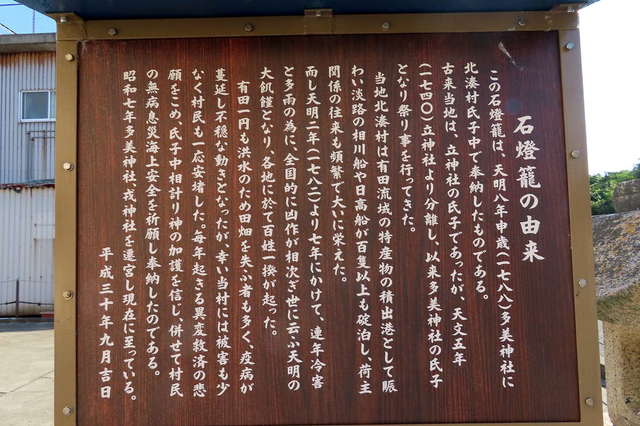 石燈籠の由来
この石燈籠は、天明八年申歳(一七八八)多美神社に
北湊村氏子中で奉納したものである。
古来当地は、立神社の氏子であったが、天文五年
(一七四〇)立神社より分離し、以来多美神社の氏子
となり祭り事を行ってきた。
当地北湊村は有田流域の特産物の積出港として賑
わい淡路の相川船や日高船が百隻以上も碇泊し、荷主
関係の往来も頻繁で大いに栄えた。
而し天明二年(一七八二)より七年にかけて、連年冷害
と多雨の為に、全国的に凶作が相次ぎ世に云ふ天明の
大飢饉となり、各地に於て百姓一揆が起った。
有田一円も洪水のため田畑を失ふ者も多く、疫病が
蔓延し不穏な動きとなったが、幸い当村には被害も少
なく村民も一応安堵した。毎年起きる異変救済の悲
願をこめ、氏子中相計り神の加護を信じ、併せて村民
の無病息災海上安全を祈願し奉納したのである。
昭和七年多美神社、戎神社を遷宮し現在に至っている。
平成三十年九月吉日